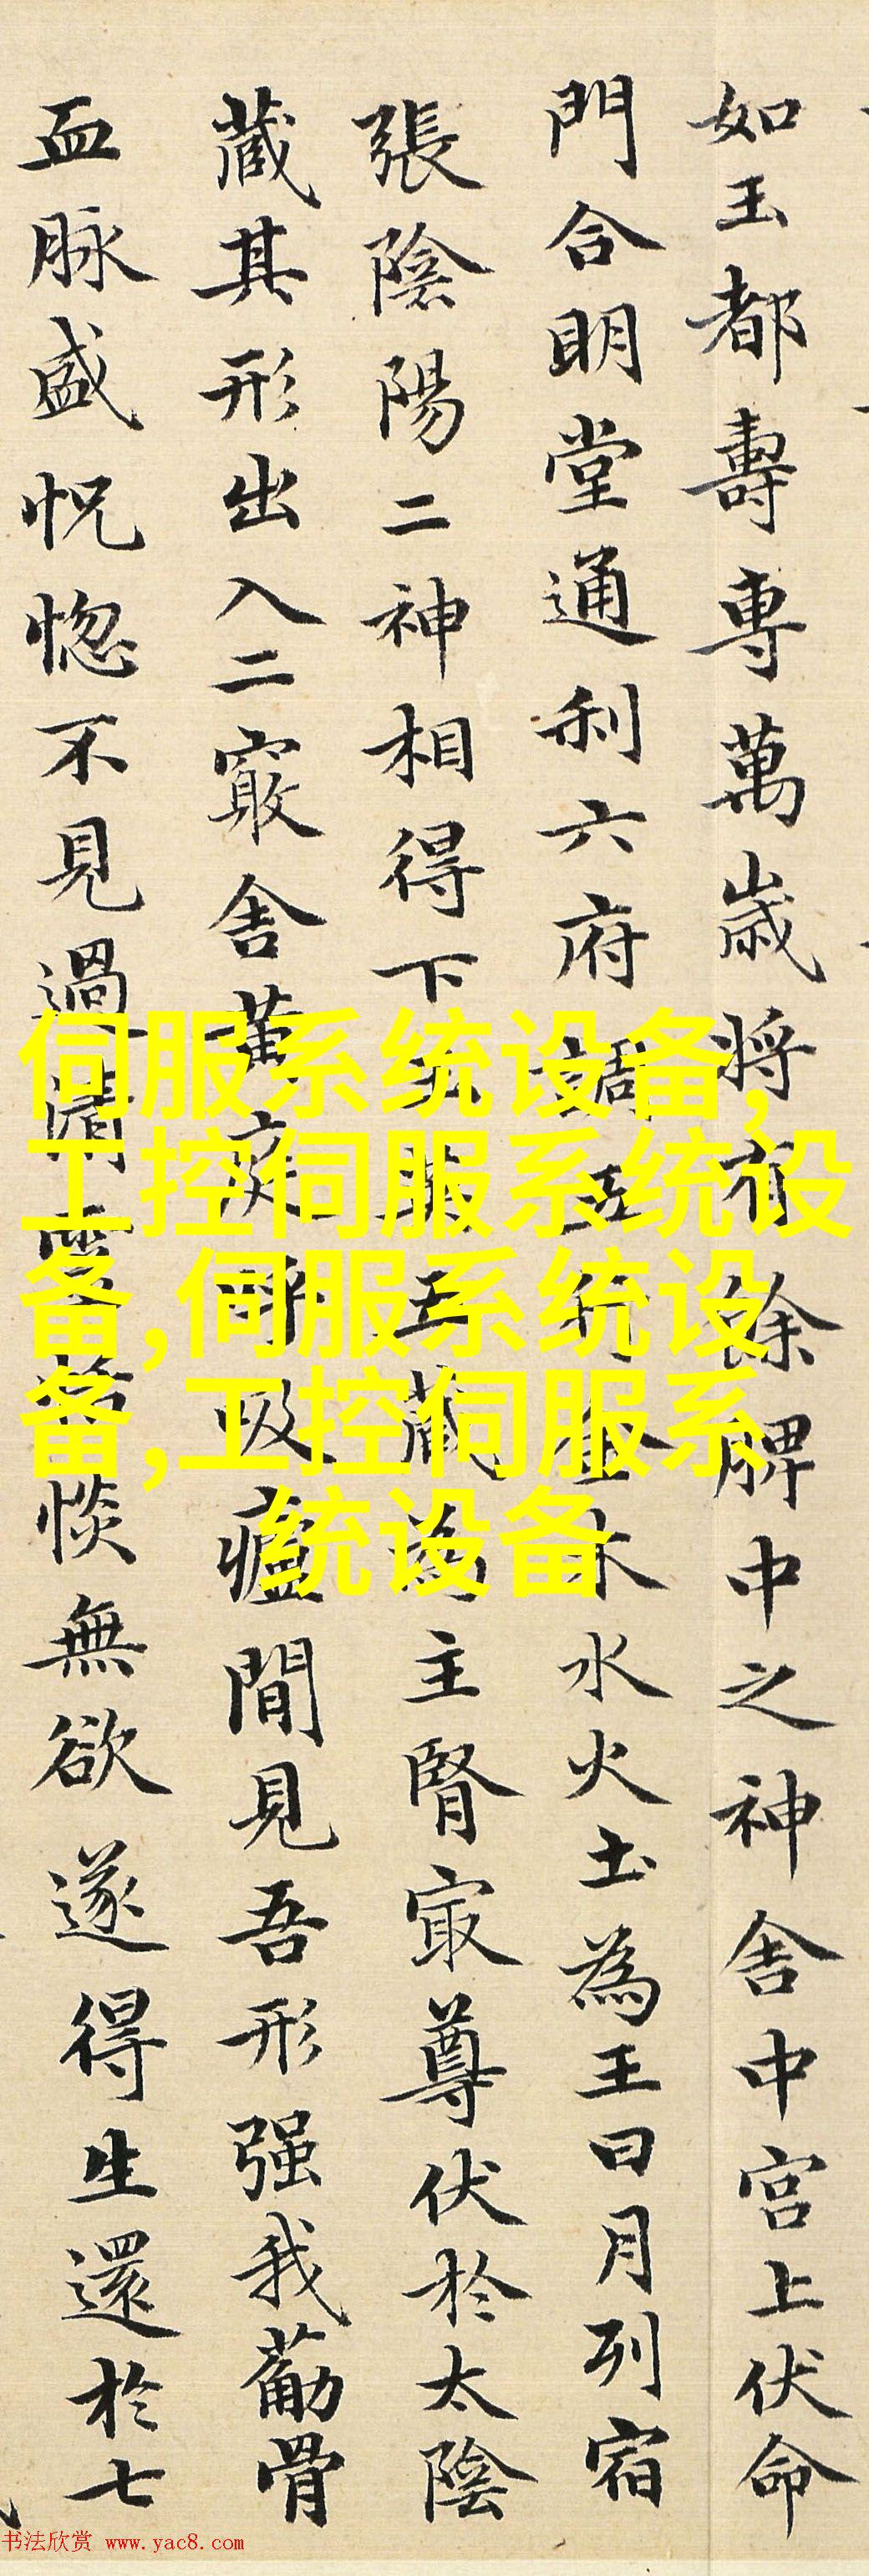 如玉都壽專萬歲將有餘脾中之神舍中宮上伏命
門合明堂通利六府調五行金木水火土為王日月列宿
張陰陽二神相得下玉英五藏為主腎寂尊伏於太陰
藏其形出入二竅舍黃庭呼吸廬間見吾形强我萠骨
血脉盛怳惚不見過清靈恬惔無欲遂得生還於七
伺服系统设备,
工控伺服系统设
备,伺服系统设
备,工控伺服系
统设备
书法欣赏 www.yac8.com